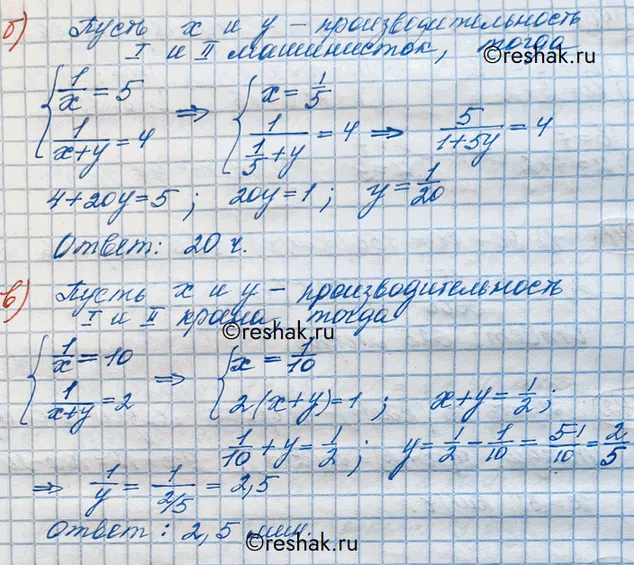 б) Пусть x и y – производительность
I и II машинисток, тогда
{ 1/x = 5 ⇒ { x = 1/5
{ 1/(x+y) = 4 { 1/(1/5+y) = 4 ⇒ 5/(1+5y) = 4
4+20y=5; 20y=1; y = 1/20
Ответ: 20 ч.
в) Пусть x и y – производительность
I и II крана тогда
{ 1/x = 10 ⇒ { x = 1/10
{ 1/(x+y) = 2 { 2(x+y)=1; x+y = 1/2;
1/10 + y = 1/2; y = 1/2 - 1/10 = (5-1)/10 = 2/5
⇒ 1/y = 1/(2/5) = 2,5
Ответ: 2,5 мин.
©reshak.ru
©reshak.ru
©reshak.ru